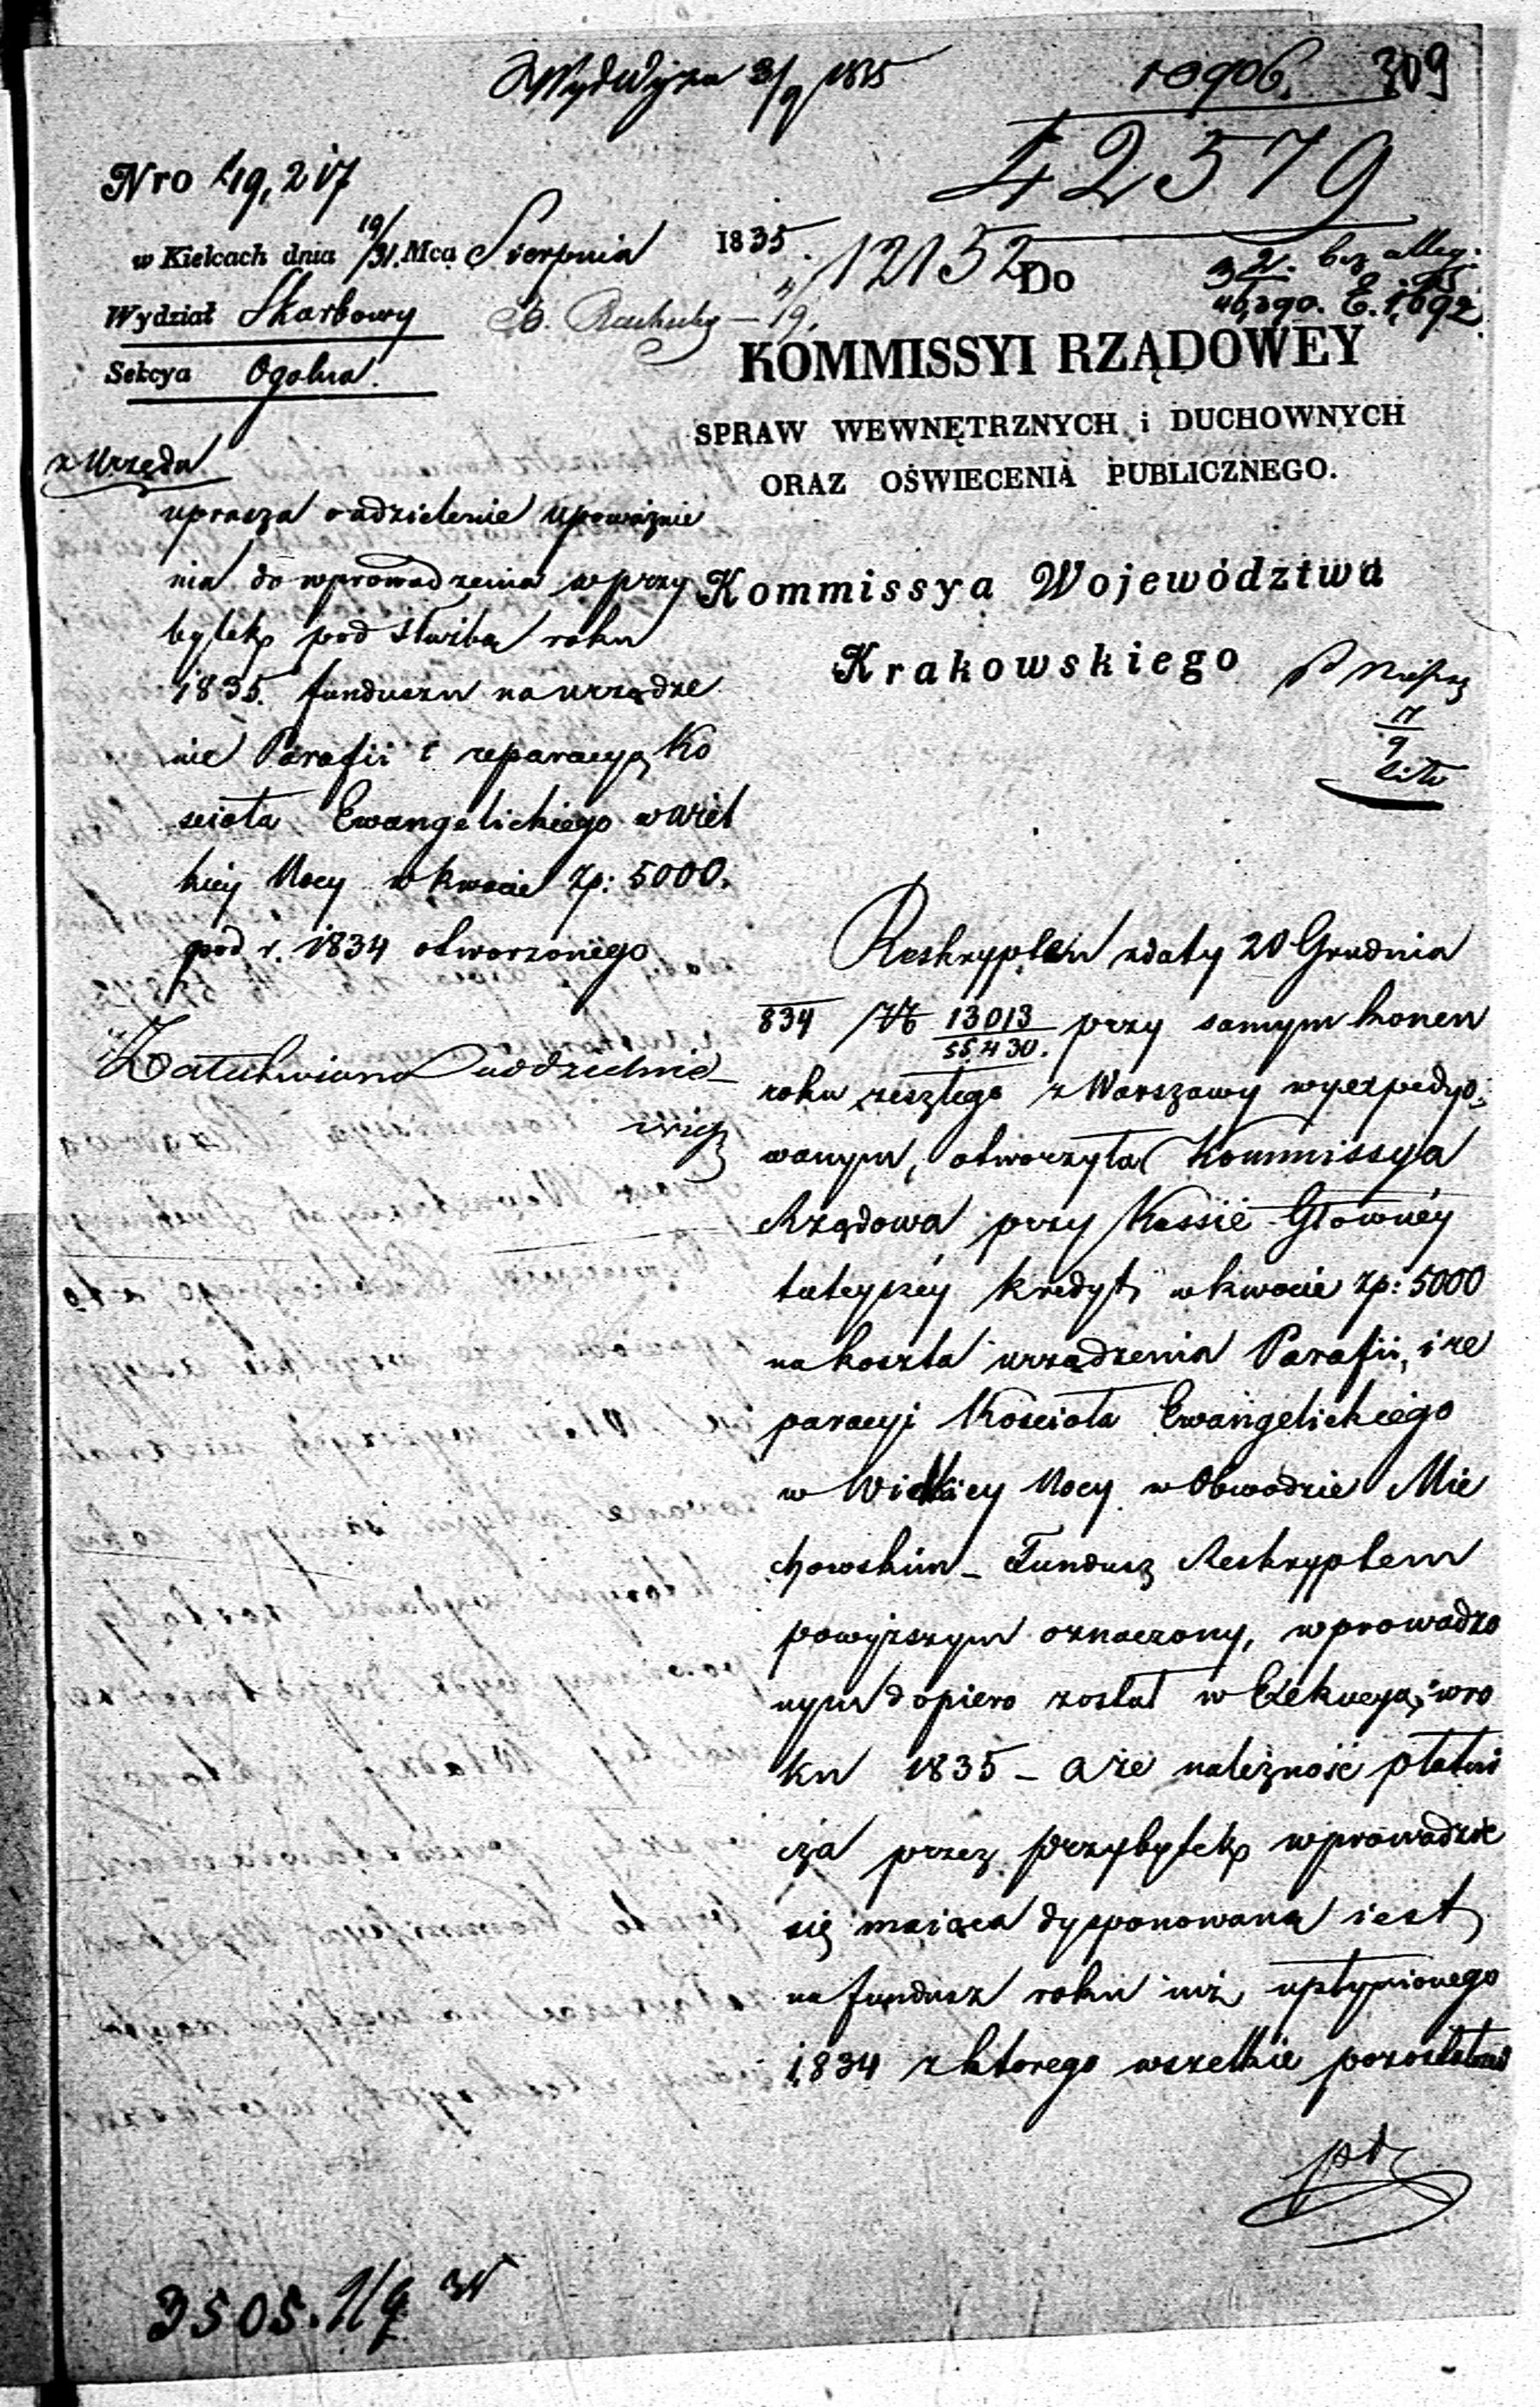 10906. 309
42579
Nro 49,217
w Kielcach dnia 19/31. Mca Sierpnia 1835
12152
Do
32. bez alleg:
Wydział Skarbowy
Sekcya Ogolna.
KOMMISSYI RZĄDOWEY
SPRAW WEWNĘTRZNYCH i DUCHOWNYCH
ORAZ OŚWIECENIA PUBLICZNEGO.
Kommissya Województwa
Krakowskiego
z Urzędu
uprasza o udzielenie upoważnie
nia do wprowadzenia w przy
bytek pod służbą roku
1835. funduszu na urządze
nie Parafii i reparacyą Ko
scioła Ewangelickiego w Wiel
kiey Nocy w kwocie Zp: 5000.
pod r. 1834 otworzonego
Reskryptem z daty 20 Grudnia
834 No 13013/55430. przy samym koncu
roku zeszłego z Warszawy wyexpedyo-
wanym, otworzyła Kommissya
Rządowa przy Kassie Głowney
tuteyszey kredyt w kwocie zp: 5000
na koszta urządzenia Parafii, i re
paracyi Kościoła Ewangelickiego
w Wielkiey Nocy w Obwodzie Mie
chowskim – Fundusz Reskryptem
powyższym oznaczony, wprowadzo
nym dopiero został w Exekucyą, w ro
ku 1835 – a że należność płatni
cza przez przybytek wprowadzić
się maiąca dysponowaną iest
na fundusz roku iuż upłynionego
1834 z ktorego wszelkie pozostałości
3505. 1/9 35